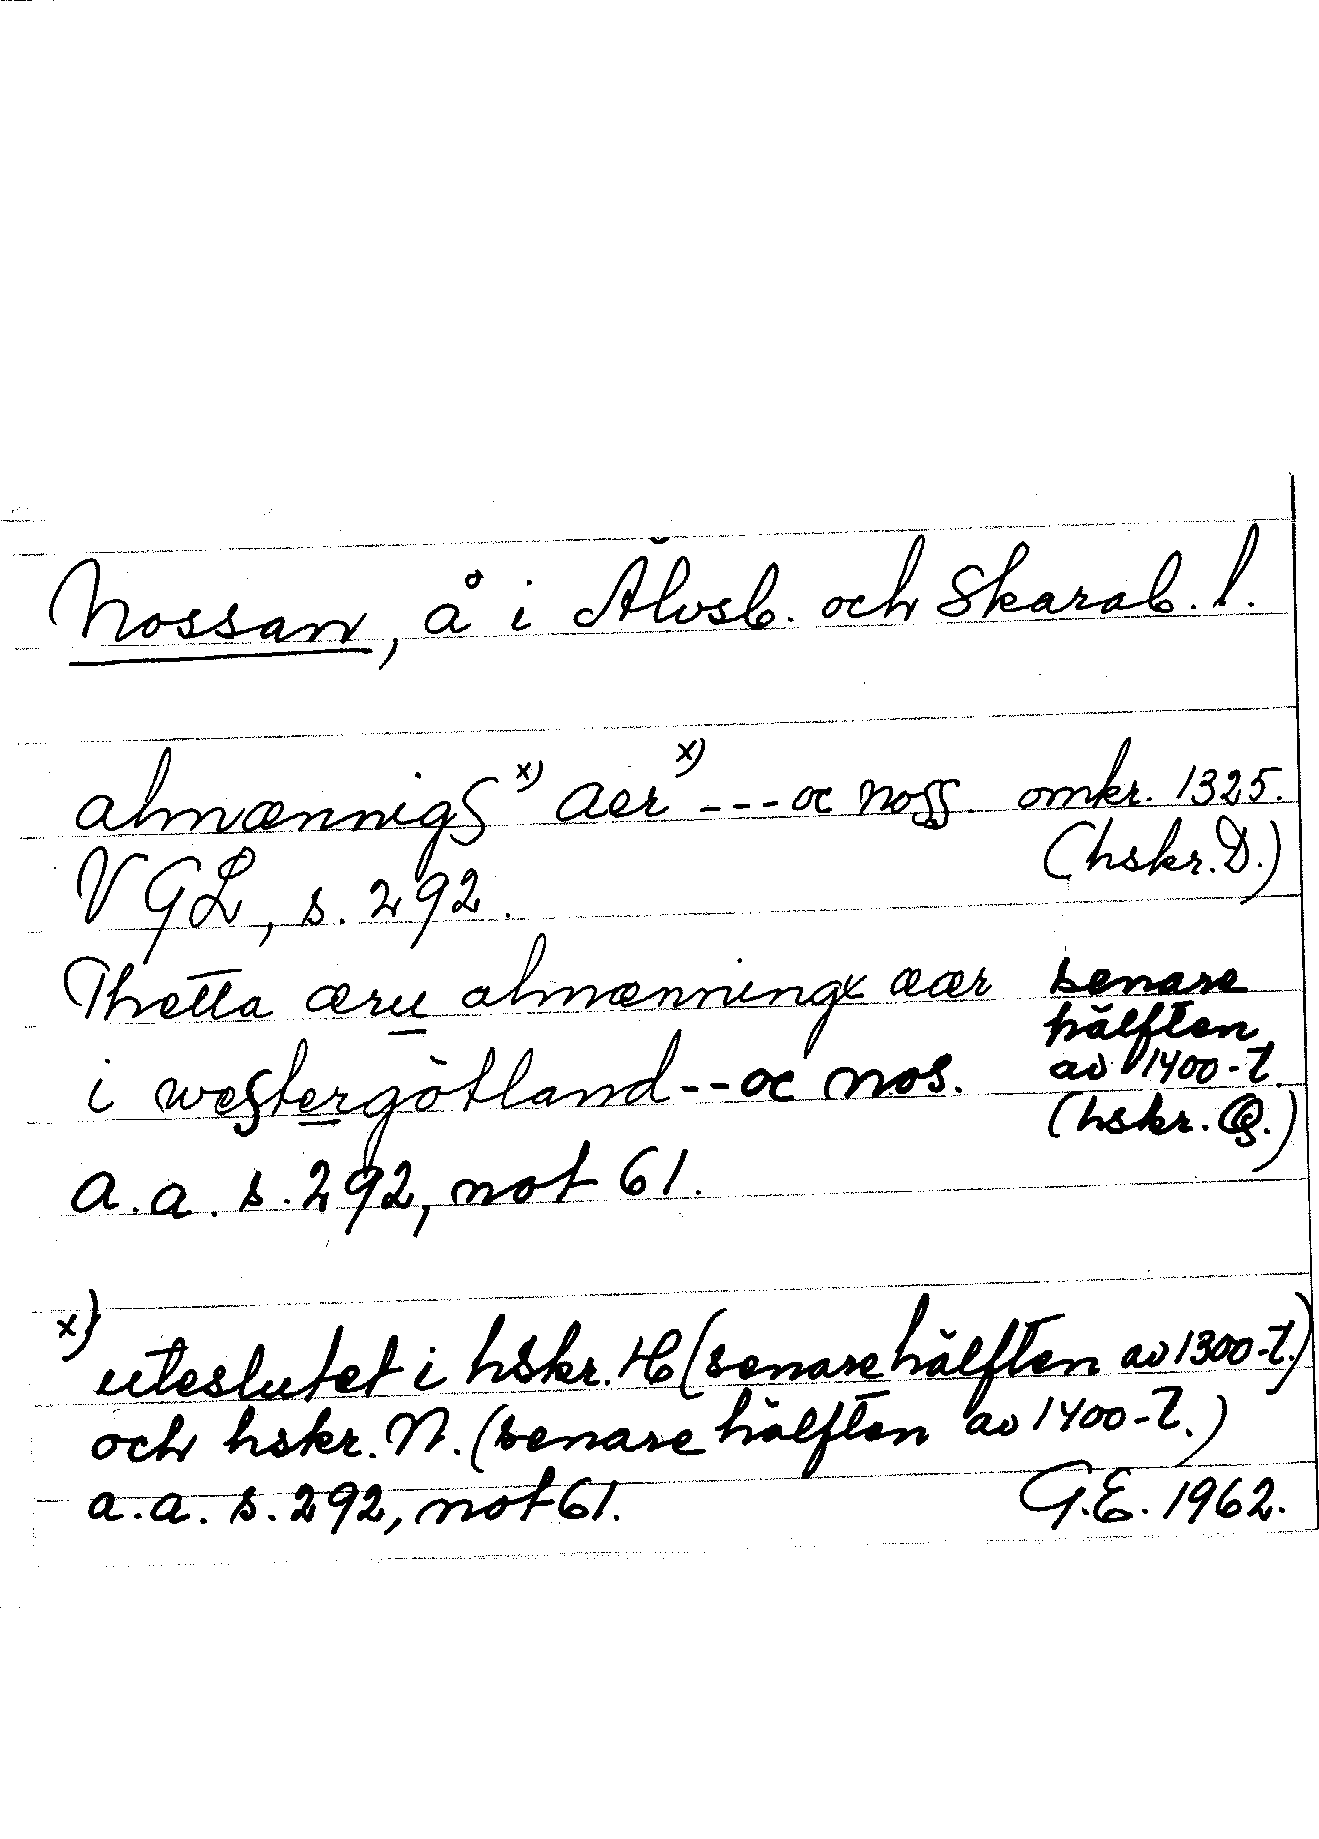 Nossan, å i Älvsb. och Skarab. l.
almænnigs x) aer x) --- oc noss. omkr. 1325.
VGL, s. 292. (hskr. D.)
Thetta æru almænningx aær senare
hälften
i westergötland -- oc nos. av 1400-t.
(hskr.
a.a. s. 292, not 61.
x) uteslutet i hskr. H (senare hälften av 1300-t.)
och hskr. N. (senare hälften av 1400-t.)
a.a. s. 292, not 61. G.E. 1962.